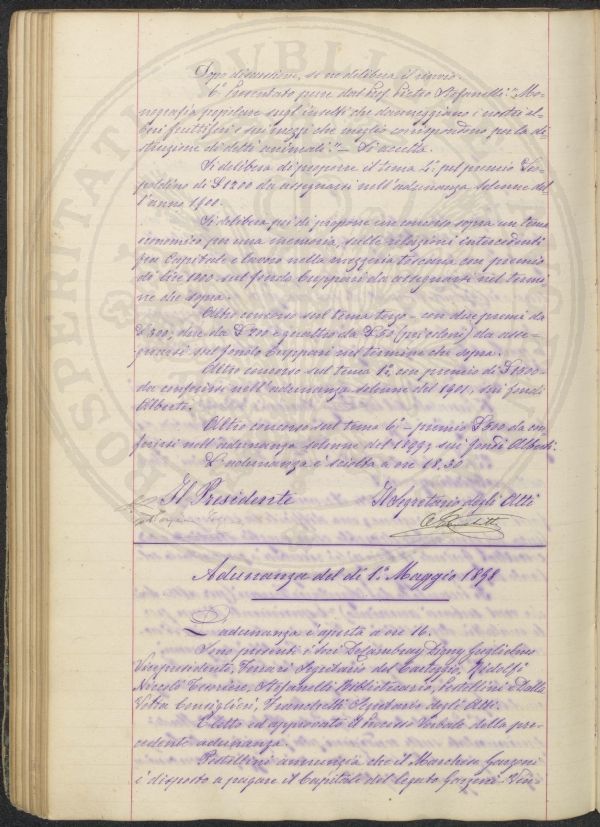 Dopo discussione, se ne delibera il rinvio.
6º Presentato pure dal Prof. Pietro Stefanelli: "Mo-
nografia popolare sugli insetti che danneggiano i nostri al-
beri fruttiferi e sui mezzi che meglio corrispondono per la di-
struzione di detti animali." – Si accetta.
Si delibera di proporre il tema 4º pel premio Leo-
poldino di £1200 da assegnarsi nell'adunanza solenne del-
l'anno 1900.
Si delibera poi di proporre un concorso sopra un tema
economico per una memoria, sulle relazioni intercedenti
fra capitale e lavoro nella mezzeria toscana con premio
di lire 1000 sul fondo Cuppari da assegnarsi nel termi-
ne che sopra.
Altro concorso sul tema terzo – con due premi da
£300, due da £200 e quattro da £50 (pei coloni) da asse-
gnarsi sul fondo Cuppari nel termine che sopra.
Altro concorso sul tema 1º, con premio di £1500
da conferirsi nell'adunanza solenne del 1901, sui fondi
Alberti.
Altro concorso sul tema 6º – premio £500 da con-
ferirsi nell'adunanza solenne del 1899, sui fondi Alberti.
L'adunanza è sciolta a ore 18.30
Il Presidente Il Segretario degli Atti
Adunanza del dì 1º Maggio 1898
L'adunanza è aperta a ore 16.
Sono presenti i soci De Cambray Digny Guglielmo
Vicepresidente, Ferrari Segretario del Carteggio, Ridolfi
Niccolò Tesoriere, Stefanelli Bibliotecario, Pestellini e Dalla
Volta Consiglieri, Franchetti Segretario degli Atti.
È letto ed approvato il Processo Verbale della pre-
cedente adunanza.
Pestellini annunzia che il Marchese Garzoni
è disposto a pagare il Capitale del legato Garzoni Veni-